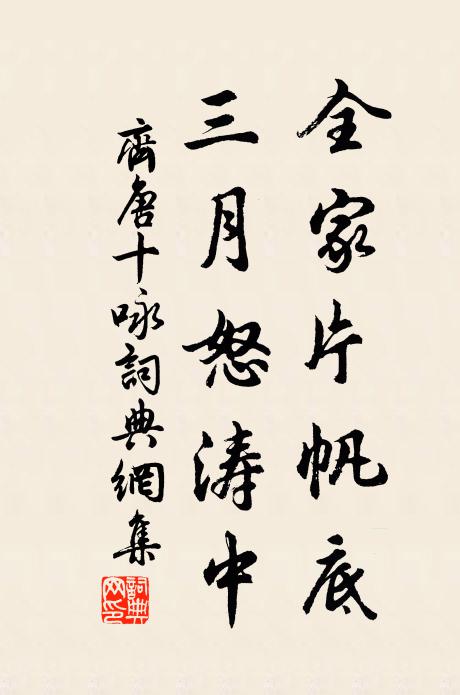 全家片帆底
三月怒涛中
齊唐十咏詞典網集
詞典网印